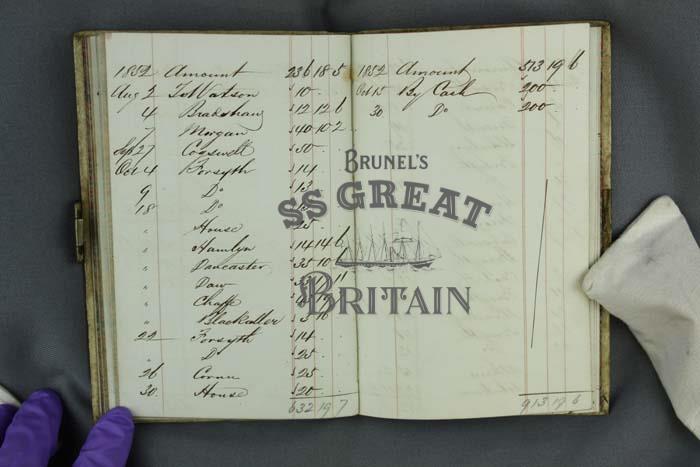 1852 Amount 236 18 5
Aug 2 To Watson 10
4 Bradshaw 12 12 6
7 Morgan 40 10 2
Sep 27 Cogswell 50
Oct 4 Forsyth 14
9 Do
18 Do
" House 25
" Hamlyn 14 14 6
" Dancaster 35 10
" Daw 11
" Chaff
" Blackaller
22 Forsyth 14
" Do 25
26 Cornu 25
30 House 20
632 19 7
1852 Amount 513 19 6
Oct 15 By Cash 200
30 Do 200
913 19 6
BRUNEL'S
SS GREAT
BRITAIN